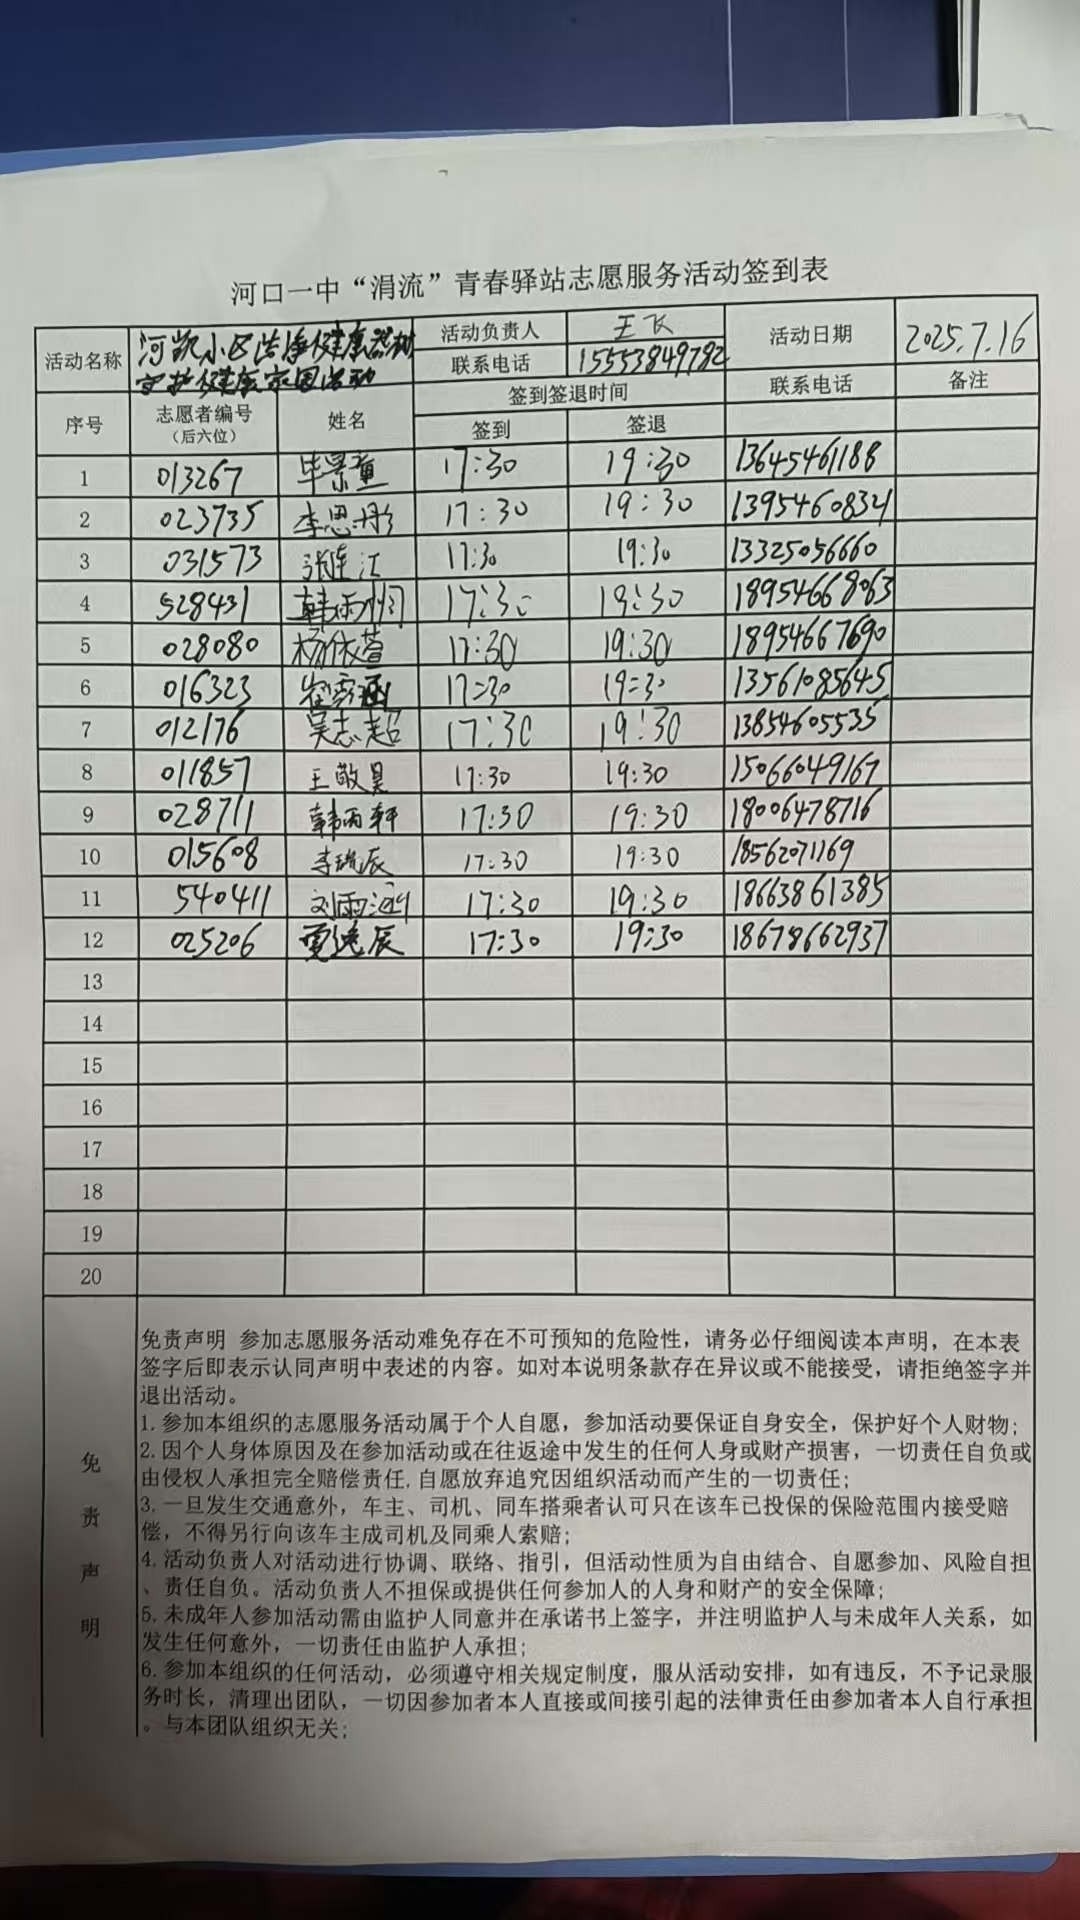 河口一中“涓流”青春驿站志愿服务活动签到表
活动名称 河凯小区洁净健康器材 活动负责人 王飞 活动日期 2025.7.16
守护健康家园活动 联系电话 15553849782
序号 志愿者编号 姓名 签到签退时间 联系电话 备注
（后六位） 签到 签退
1 013267 毕景童 17:30 19:30 13645461188
2 023735 李思彤 17:30 19:30 13954608321
3 031573 张连江 17:30 19:30 13325056660
4 528431 韩雨 17:30 19:30 18954668063
5 028080 杨依萱 17:30 19:30 18954667690
6 016323 涵 17:30 19:30 13561085645
7 012176 吴志超 17:30 19:30 13854605535
8 011857 王敬昊 17:30 19:30 15066049167
9 028711 韩丙轩 17:30 19:30 18006478716
10 015608 李瑞辰 17:30 19:30 18562071169
11 540411 刘雨涵 17:30 19:30 18663861385
12 025206 逸辰 17:30 19:30 18678662937
13
14
15
16
17
18
19
20
免责声明
免责声明 参加志愿服务活动难免存在不可预知的危险性，请务必仔细阅读本声明，在本表
签字后即表示认同声明中表述的内容。如对本说明条款存在异议或不能接受，请拒绝签字并
退出活动。
1.参加本组织的志愿服务活动属于个人自愿，参加活动要保证自身安全，保护好个人财物；
2.因个人身体原因及在参加活动或在往返途中发生的任何人身或财产损害，一切责任自负或
由侵权人承担完全赔偿责任,自愿放弃追究因组织活动而产生的一切责任；
3.一旦发生交通意外，车主、司机、同车搭乘者认可只在该车已投保的保险范围内接受赔
偿，不得另行向该车主成司机及同乘人索赔；
4.活动负责人对活动进行协调、联络、指引，但活动性质为自由结合、自愿参加、风险自担
、责任自负。活动负责人不担保或提供任何参加人的人身和财产的安全保障；
5.未成年人参加活动需由监护人同意并在承诺书上签字，并注明监护人与未成年人关系，如
发生任何意外，一切责任由监护人承担；
6.参加本组织的任何活动，必须遵守相关规定制度，服从活动安排，如有违反，不予记录服
务时长，清理出团队，一切因参加者本人直接或间接引起的法律责任由参加者本人自行承担
。与本团队组织无关；